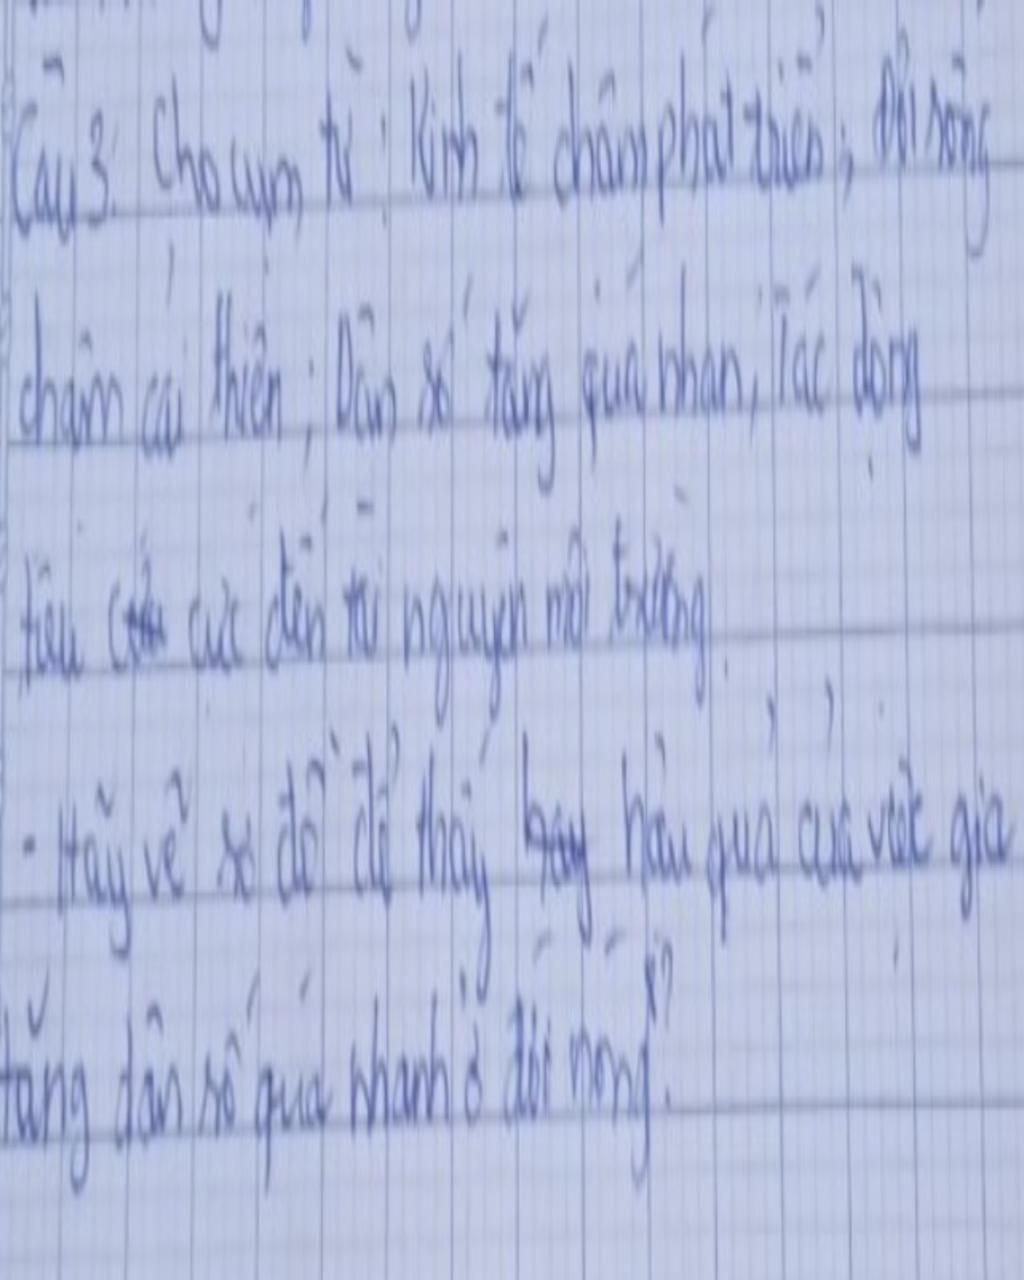 Câu 3. Cho cụm từ: Kinh tế chậm phát triển; Đời sống
chậm cải thiện; Dân số tăng quá nhan, Tác động
tiêu cực đến tài nguyên môi trường
- Hãy vẽ sơ đồ để thấy hậu quả của việc gia
tăng dân số quá nhanh ở đới nóng?